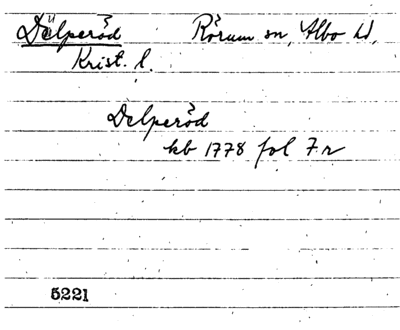 Dälperöd Rörum sn, Albo hd,
Krist. l.
Delperöd
kb 1778 fol 7 r
5221